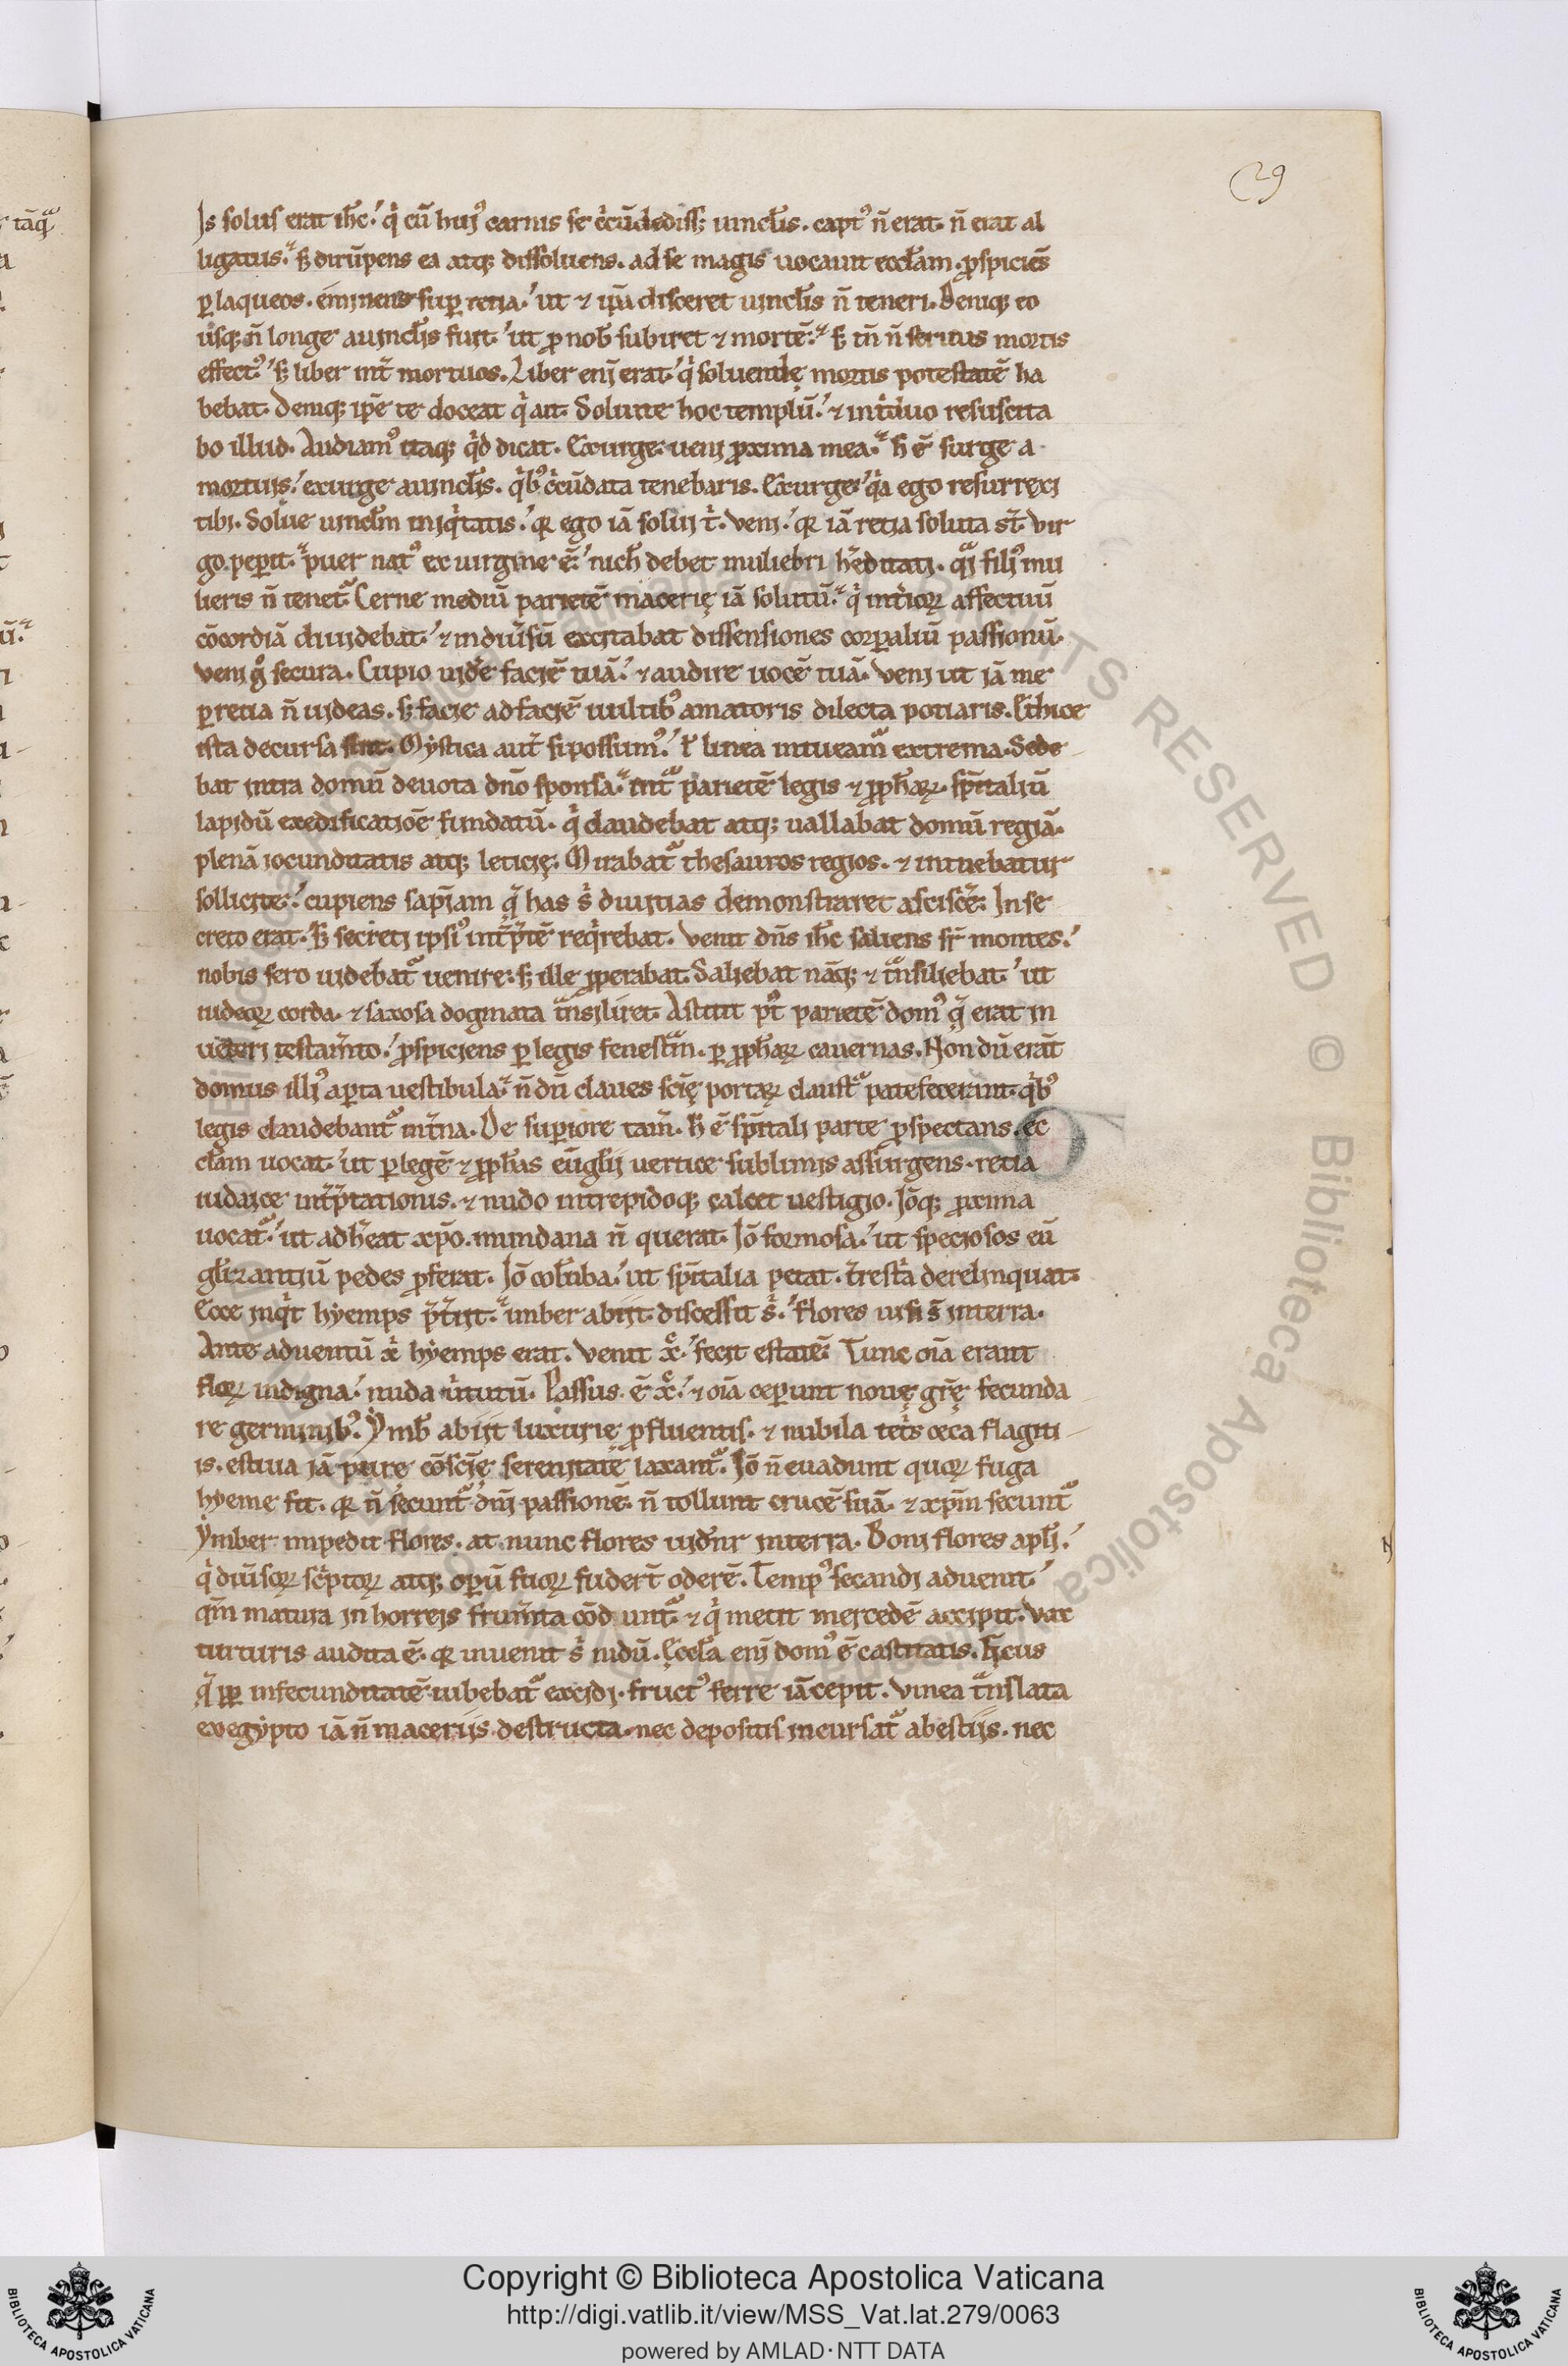 29
Is solus erat ih̄c. q̇ cū huiꝰ carnis se c̄cūdediss; uincl̄is. captꝰ n̄ erat. n̄ erat al
ligatus. sꝫ dirūpens ea atqꝫ dissoluens. ad se magis uocauit eccl̄am. ꝓspiciēs
ꝑ laqueos. eminens suꝑ retia. ut ⁊ ip̄a disceret uincl̄is n̄ teneri. Deniqꝫ eo
usqꝫ n̄ longe a uincl̄is fuit. ut ꝓ nob̄ subiret ⁊ mortē. sꝫ tn̄ n̄ seruus mortis
effectꝰ. sꝫ liber int̄ mortuos. Liber enī erat. q̇ soluendę mortis potestatē ha
bebat. Deniqꝫ ip̄e te doceat q̇ ait. Soluite hoc templū. ⁊ in triduo resuscita
bo illud. Audiamꝰ itaqꝫ q̇d dicat. Exurge. ueni ꝓxima mea. h̄ ē surge a
mortuis. exurge a uincl̄is. q̇bꝰ c̄cūdata tenebaris. Exurge. q̇a ego resurrexi
tibi. Solue uincl̄m iniq̇tatis. qꝛ ego iā solui t̄. Veni. qꝛ iā retia soluta st̄. Vir
go peꝑit. puer natꝰ ex uirgine ē. nich̄ debet muliebri h̄editati. qī filiꝰ mu
lieris n̄ tenet᷑. Cerne mediū parietē macerię iā solutū. q̇ int̄ioꝝ affectuū
cōcordiā diuidebat. ⁊ in diūsū excitabat dissensiones corꝑaliū passionū.
Veni g̊ secura. Cupio uid̄e faciē tuā. ⁊ audire uocē tuā. Veni ut iā me
ꝑ retia n̄ uideas. sꝫ facie ad faciē uultibꝰ amatoris dilecta potiaris. Ethice
ista decursa sint. Mystica aut̄ si possumꝰ. ł linea intueam᷑ extrema. Sede
bat intra domū deuota dn̄o sponsa. int̄ parietē legis ⁊ ꝓph̄aꝝ. sp̄italiū
lapidū exedificatiōe fundatū. q̇ claudebat atqꝫ uallabat domū regiā.
plenā iocunditatis atqꝫ leticię. Mirabat᷑ thesauros regios. ⁊ intuebatur
sollicite. cupiens sap̄iam q̄ has s̄ diuitias demonstraret ascisc̄e. In se
creto erat. sꝫ secreti ipsiꝰ int̄p̄tē req̇rebat. Venit dn̄s ih̄c saliens sr̄ montes.
nobis sero uidebat᷑ uenire. sꝫ ille ꝓperabat. Saliebat nāqꝫ ⁊ t̄nsiliebat. ut
iudeoꝝ corda. ⁊ saxosa dogmata t̄nsiliret. Astitit pꝰt parietē domꝰ q̄ erat in
ueteri testam̄to. ꝓspiciens ꝑ legis fenest̄m. ꝑ ꝓph̄aꝝ cauernas. Non dū erāt
domus illiꝰ aꝑta uestibula. n̄ dū claues scīę portaꝝ claust᷑ patefecerunt. q̇bꝰ
legis claudebant᷑ int̄na. De suꝑiore tam̄. h̄ ē sp̄itali parte ꝓspectans. ec
cl̄am uocat. ut ꝑ legē ⁊ ꝓph̄as eūglīj uertice sublimis assurgens. retia
iudaice int̄p̄tationis. ⁊ nudo intrepidoqꝫ calcet uestigio. Iōqꝫ ꝓxima
uocat᷑. ut adh̄eat xp̄o. mundana n̄ querat. Iō formosa. ut speciosos eū
gl̄izantiū pedes ꝓferat. Iō colūba. ut sp̄italia petat. t̄rest̄a derelinquat.
Ecce inq̇t hyemps p̄t̄iit. imber abiit. discessit s̄. flores uisi s̄ in terra.
Ante aduentū x̄i hyemps erat. Venit x̄c. fecit estatē. Tunc oīa erant
floꝝ indigna. nuda ūtutū. Passus ē x̄c. ⁊ oīa ceꝑunt nouę gr̄ę fecunda
re germinibꝰ. Ymb̄ abiit luxurie ꝓfluentis. ⁊ nubila tet̄s ceca flagiti
is. estiua iā pure cōscīę serenitatē laxant᷑. Iō n̄ euadunt quoꝝ fuga
hyeme fit. qꝛ n̄ secunt᷑ dn̄i passionē. n̄ tollunt crucē suā. ⁊ xp̄m secunt᷑
Ymber impedit flores. at nunc flores uid̄nr in terra. Boni flores apl̄i.
q̇ diūsoꝝ sc̄ptoꝝ atqꝫ oꝑū suoꝝ fudert̄ odorē. Tempꝰ secandi aduenit.
qm̄ matura in horreis frum̄ta cōdunt᷑. ⁊ q̇ metit mercedē accipit. Vox
turturis audita ē. qꝛ inuenit s̄ nidū. Eccl̄a enī domꝰ ē castitatis. Ficus
q̄ ꝓpt infecunditatē iubebat᷑ excidi. fructꝰ ferre iā cepit. Vinea t̄nslata
ex egypto iā n̄ maceriis destructa. nec depositis incursat᷑ a bestiis. nec
BIBLIOTECA APOSTOLICA VATICANA
Copyright © Biblioteca Apostolica Vaticana
http://digi.vatlib.it/view/MSS_Vat.lat.279/0063
powered by AMLAD·NTT DATA
BIBLIOTECA APOSTOLICA VATICANA